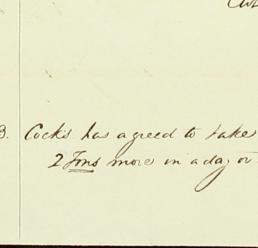 B. Cocks has agreed to take
2 Tons more in a day or